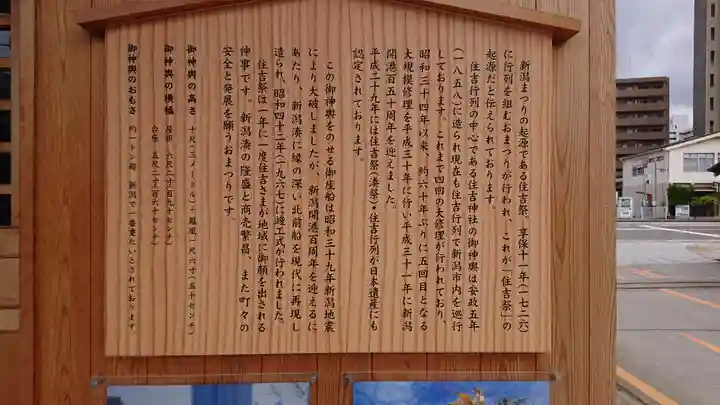 新潟まつりの起源である住吉祭。享保十一年(一七二六)
に行列を組むおまつりが行われ、これが「住吉祭」の
起源だと伝えられております。
住吉行列の中心である住吉神社の御神輿は安政五年
(一八五八)に造られ現在も住吉行列で新潟市内を巡行
しております。これまで四回の大修理が行われており、
昭和三十四年以来、約六十年ぶりに五回目となる
大規模修理を平成三十年に行い平成三十一年に新潟
開港百五十周年を迎えました。
平成二十九年には住吉祭(湊祭)・住吉行列が日本遺産にも
認定されております。
この御神輿をのせる御座船は昭和三十九年新潟地震
により大破しましたが、新潟開港百周年を迎えるに
あたり、新潟湊に縁の深い北前船を現代に再現し
造られ、昭和四十二年(一九六七)に竣工式が行われました。
住吉祭は一年に一度住吉さまが地域に御顔を出される
神事です。新潟湊の隆盛と商売繁昌、また町々の
安全と発展を願うおまつりです。
御神輿の高さ 十尺(三メートル)+鳳凰一尺六寸(五十センチ)
御神輿の横幅 屋根 六尺三寸(百九十センチ)
台座 五尺三寸(百六十センチ)
御神輿のおもさ 約一トン超 新潟で一番重たいとされております。